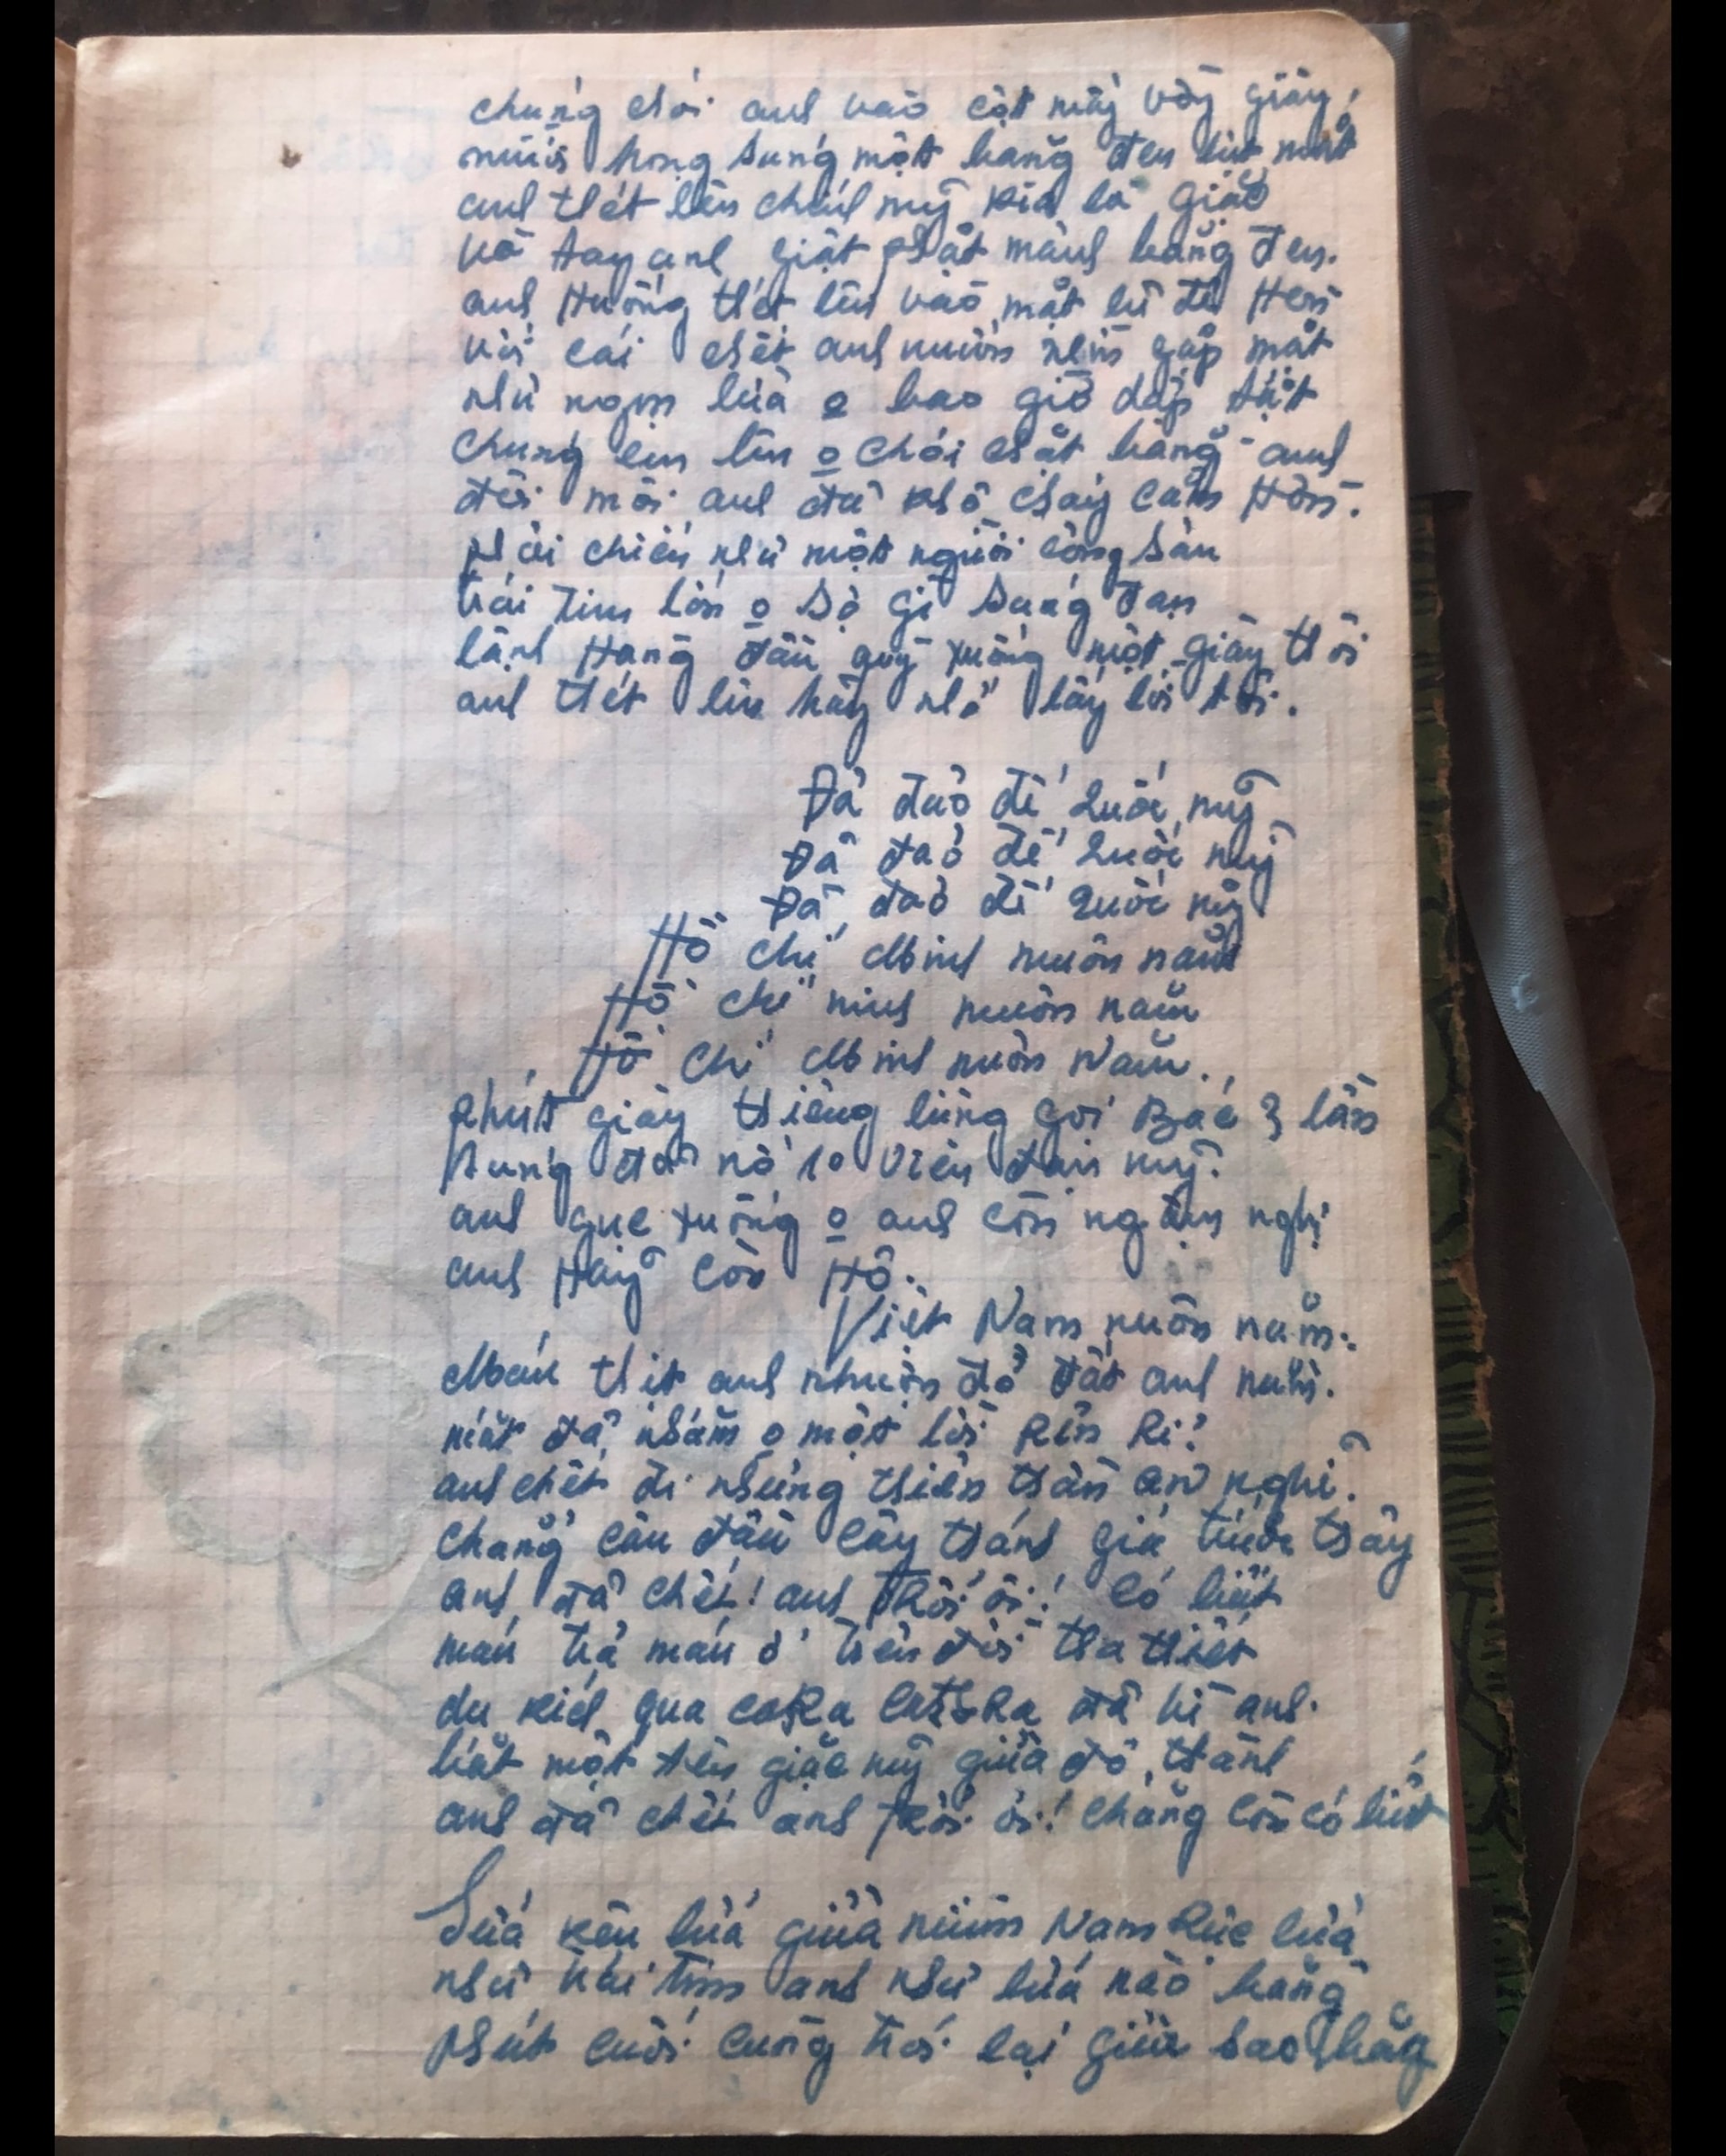 chúng chói anh vào cột mấy vòng giây
mười họng súng một băng đen bịt mắt
anh thét lên chính mỹ kia là giặc
và tay anh giật phắt mảnh băng đen.
anh trường thét lên vào mặt lũ đê hèn
với cái chết anh muốn nhìn gặp mặt
như ngọn lửa o bao giờ dập tắt
chúng em lên o chói chặt bằng anh
đôi môi anh đã khô cháy căm hờn.
phải chiến như một người cộng sản
trái tim lớn o sợ gì súng đạn
lệnh hàng đầu quỳ xuống một giây thôi
anh thét lên hãy nhớ lấy lời tôi.
Đả đảo đế quốc mỹ
Đả đảo đế quốc mỹ
Đả đảo đế quốc mỹ
Hồ chí Minh muôn năm
Hồ chí minh muôn năm
Hồ Chí Minh muôn Năm.
phút giây thiêng liêng gọi Bác 3 lần
súng đã nổ 10 viên đạn mỹ.
anh gục xuống o anh còn ngẩng nghị
anh Hãy còn Hô.
Việt Nam muôn năm.
Máu thịt anh nhuộm đỏ đất anh nằm.
mắt đã nhắm o một lời rên rỉ!
anh chết đi những thiên thần an nghỉ.
chẳng cần đâu cây thánh giá trước thây
anh đã chết! anh Trỗi ơi! có biết
máu trả máu ở trên đời tha thiết
du kích qua caRa catsRa đã vì anh.
bắt một tên giặc mỹ giữa đô thành
anh đã chết anh Trỗi ơi! chẳng còn có biết
Lửa kêu lửa giữa miềm Nam rực lửa
như trái tim anh như lửa nào bằng
phút cuối cùng trói lại giữa bao băng